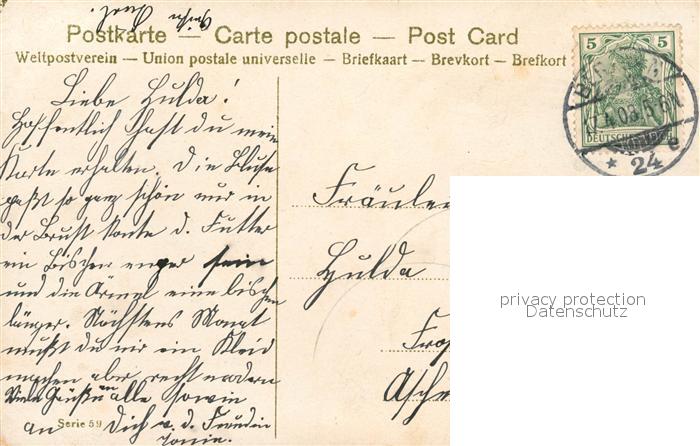 Postkarte — Carte postale — Post Card
Weltpostverein — Union postale universelle — Briefkaart — Brevkort — Brefkort
5 5
DEUTSCHES REICH
17.4.08.5-6N
* 24 e
Liebe Hulda!
Hoffentlich hast du meine
Karte erhalten. Die Bluse
paßt so ganz schön nur in
der Brust konte d. Futter
ein Bischen enger sein
und die Ärmel eine bischen
länger. Nächstens Monat
mußt du mir ein Kleid
machen aber recht modern
Viele Grüße an alle sowie
an Dich v. d. Freundin
Serie 59
Fräulein
Hulda
privacy protection
Datenschutz